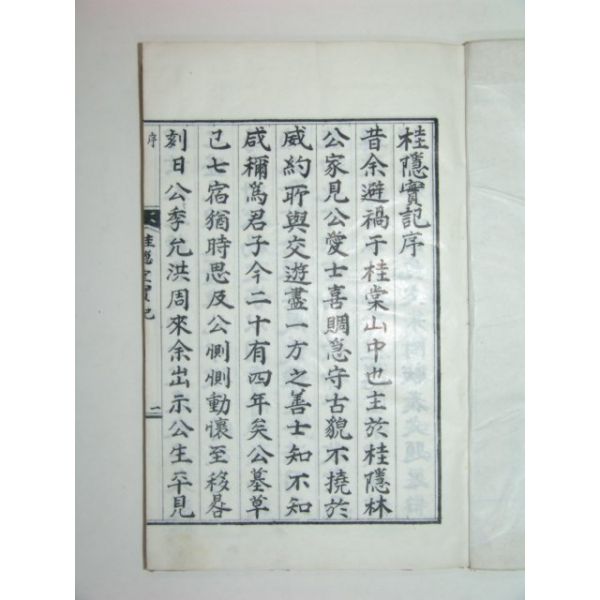 桂隱實記序
昔余避禍于桂棠山中也主於桂隱林
公家見公愛士喜賙急守古貌不撓於
威約所與交遊盡一方之善士知不知
咸稱爲君子今二十有四年矣公墓草
已七宿猶時思及公惻惻動懷至移晷
刻日公季允洪周來余出示公生平見
序
桂隱實記
一